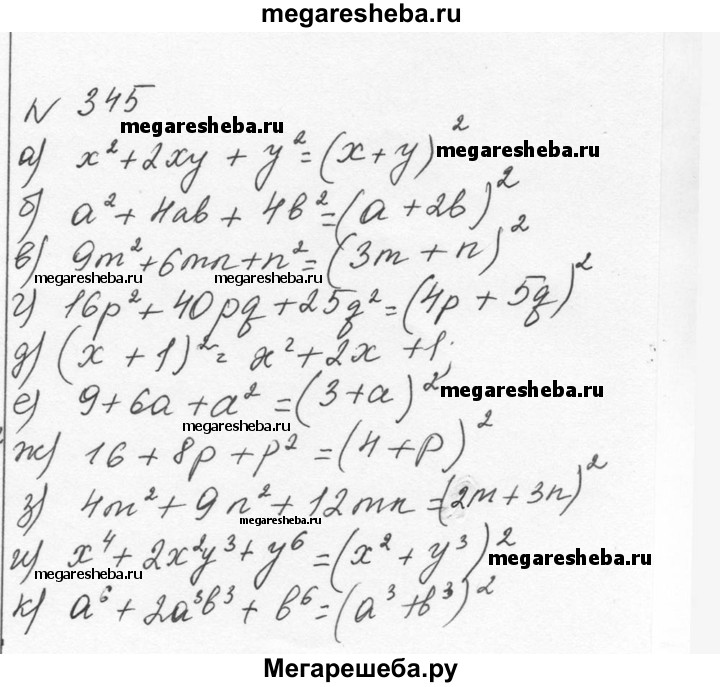 megaresheba.ru
N 345
megaresheba.ru
а) x²+2xy + y²=(x+y)² megaresheba.ru
б) a²+4ab + 4b²=(a+2b)²
в) 9m²+6mn+n²=(3m+n)²
megaresheba.ru megaresheba.ru
г) 16p²+40pq+25q²=(4p+5q)²
д) (x+1)²= x²+2x+1.
е) 9+6a+a²=(3+a)² megaresheba.ru
megaresheba.ru
ж) 16+8p+p²=(4+p)²
з) 4m²+9n²+12mn=(2m+3n)²
megaresheba.ru
и) x⁴+2x²y³+y⁶=(x²+y³)² megaresheba.ru
megaresheba.ru
к) a⁶+2a³b³+b⁶=(a³+b³)²
Мегарешеба.ру